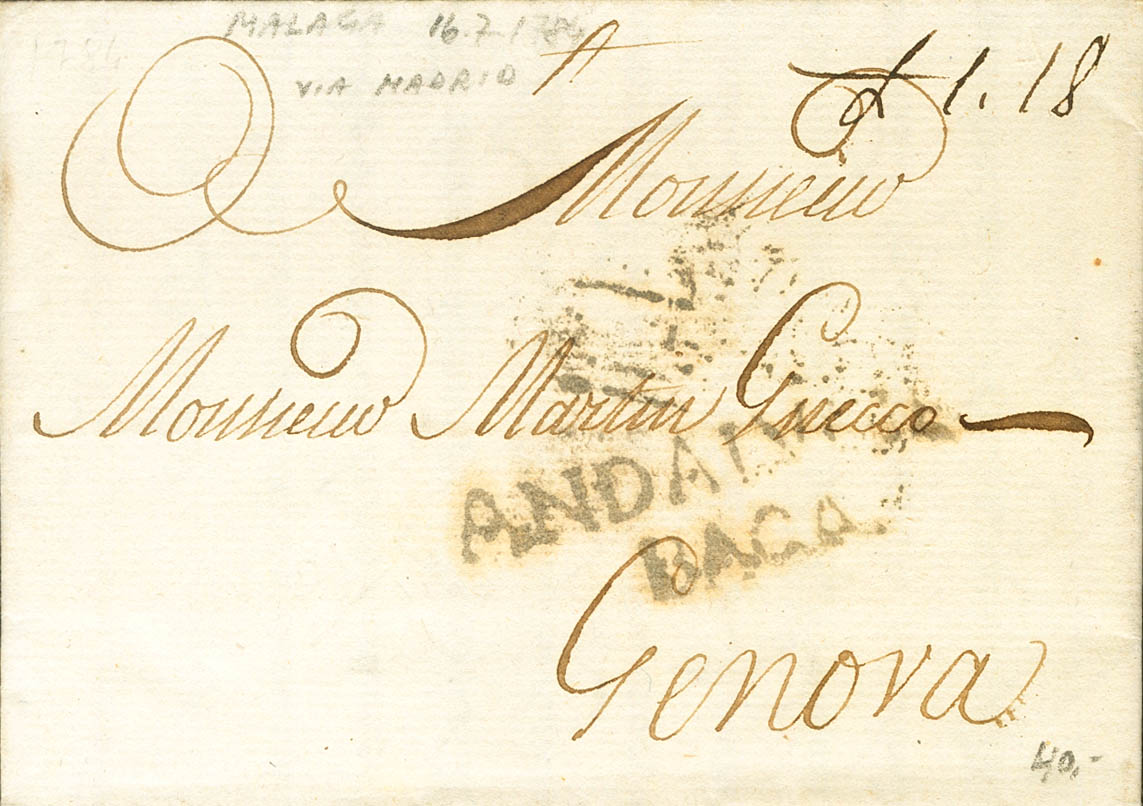 MALAGA 16.7.1784
1784
VIA MADRID
A
£ 1.18
Monsieur
Monsieur Martin Gnecco
ANDALUCIA
BAGA
Genova
40,-